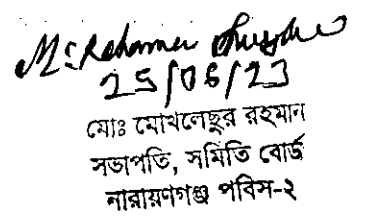 25/06/23
মোঃ মোখলেছুর রহমান
সভাপতি, সমিতি বোর্ড
নারায়ণগঞ্জ পবিস-২